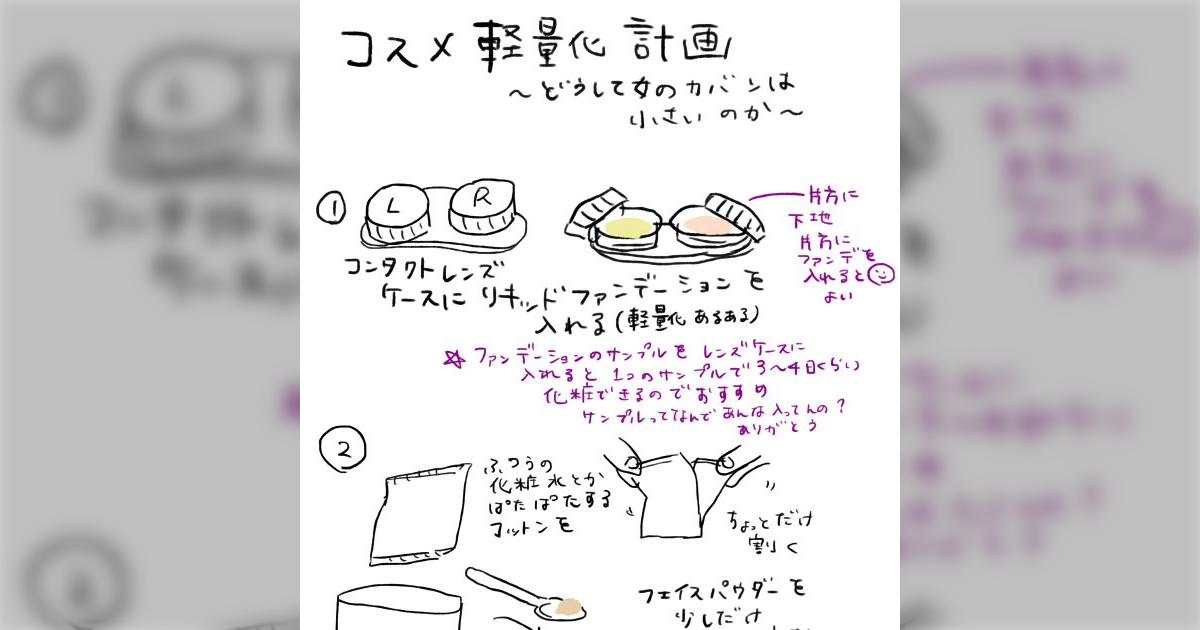 コスメ軽量化計画
～どうして女のカバンは
小さいのか～
①
L
R
コンタクトレンズ
ケースにリキッドファンデーションを
入れる(軽量化あるある)
片方に
下地
片方に
ファンデを
入れると
よい
☆ファンデーションのサンプルをレンズケースに
入れると1つのサンプルで3～4日くらい
化粧できるのでおすすめ
サンプルってなんであんな入ってんの?
ありがとう
②
ふつうの
化粧水とか
ぱたぱたする
コットンを
ちょっとだけ
割く
フェイスパウダーを
少しだけ